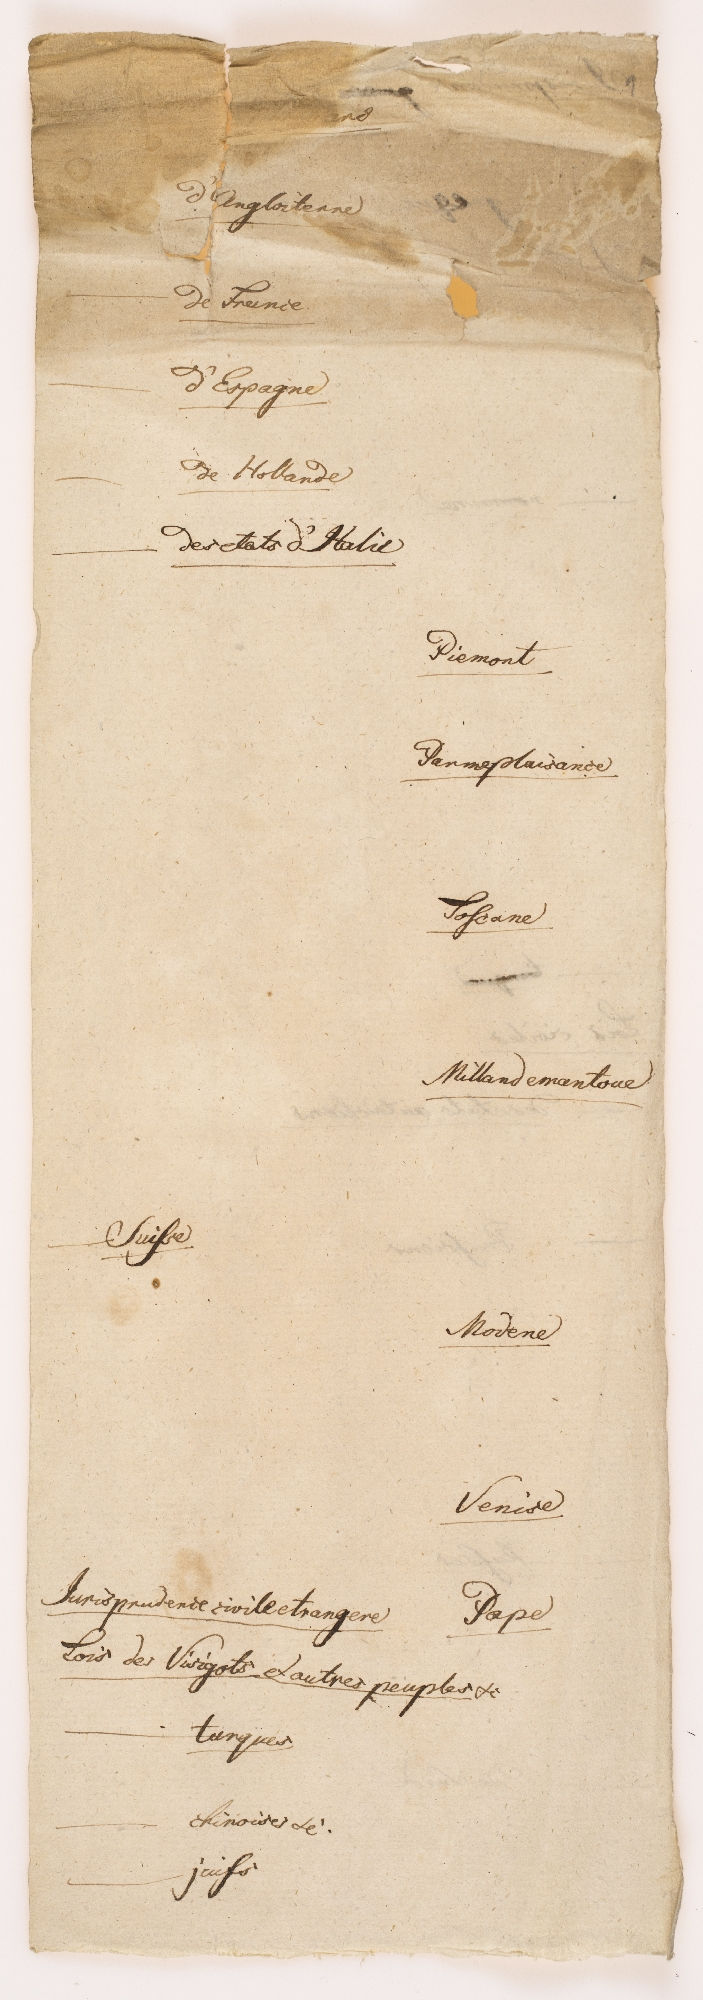 d'Angloiterre
de France
d'Espagne
de Hollande
des etats d'Italie
Piemont
Parme plaisance
Toscane
Millan de mantoue
Suisse
Modene
Venise
Jurisprudence civile etrangere
Pape
Lois des Visigots & autres peuples &c
turques
chinoises &c.
juifs